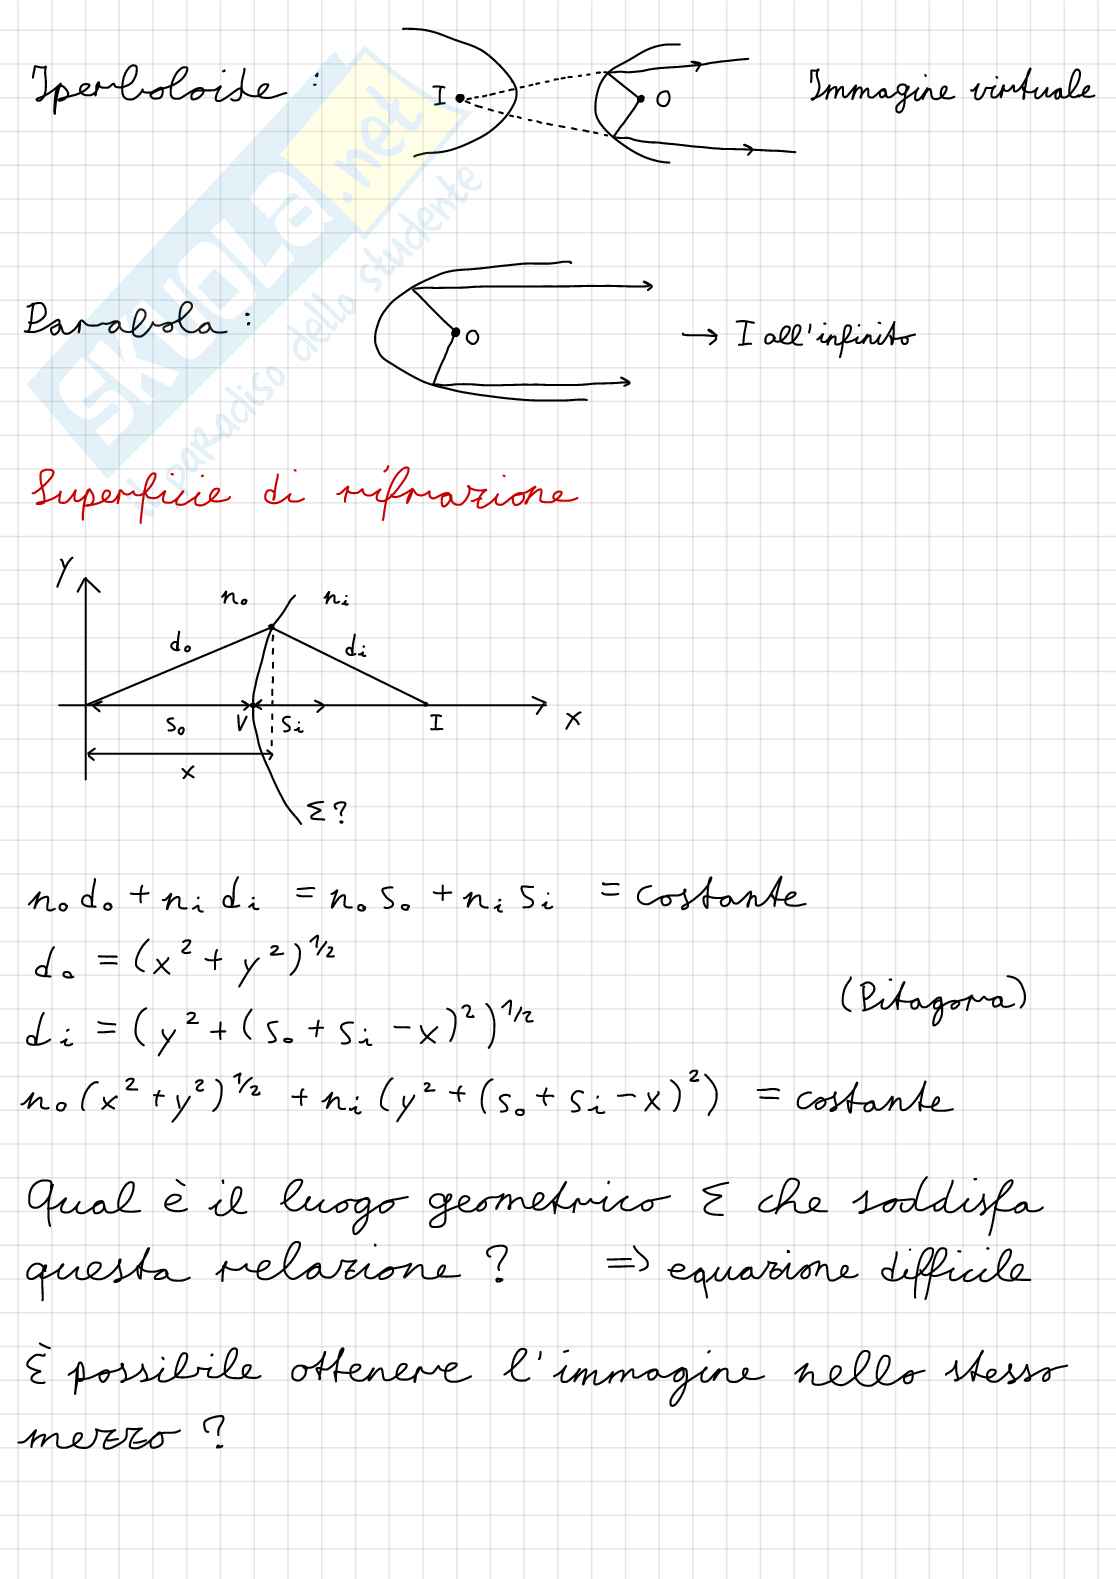 Iperboloide :
I
O
Immagine virtuale
SKUOLA.net
il paradiso dello studente
Parabola :
O
→ I all'infinito
Superficie di rifrazione
y
n₀ nᵢ
d₀ dᵢ
s₀ V sᵢ I x
x
Σ ?
n₀ d₀ + nᵢ dᵢ = n₀ s₀ + nᵢ sᵢ = costante
d₀ = (x² + y²)^1/2
(Pitagora)
dᵢ = (y² + (s₀ + sᵢ - x)²)^1/2
n₀ (x² + y²)^1/2 + nᵢ (y² + (s₀ + sᵢ - x)²) = costante
Qual è il luogo geometrico Σ che soddisfa
questa relazione ? ⇒ equazione difficile
È possibile ottenere l'immagine nello stesso
mezzo ?